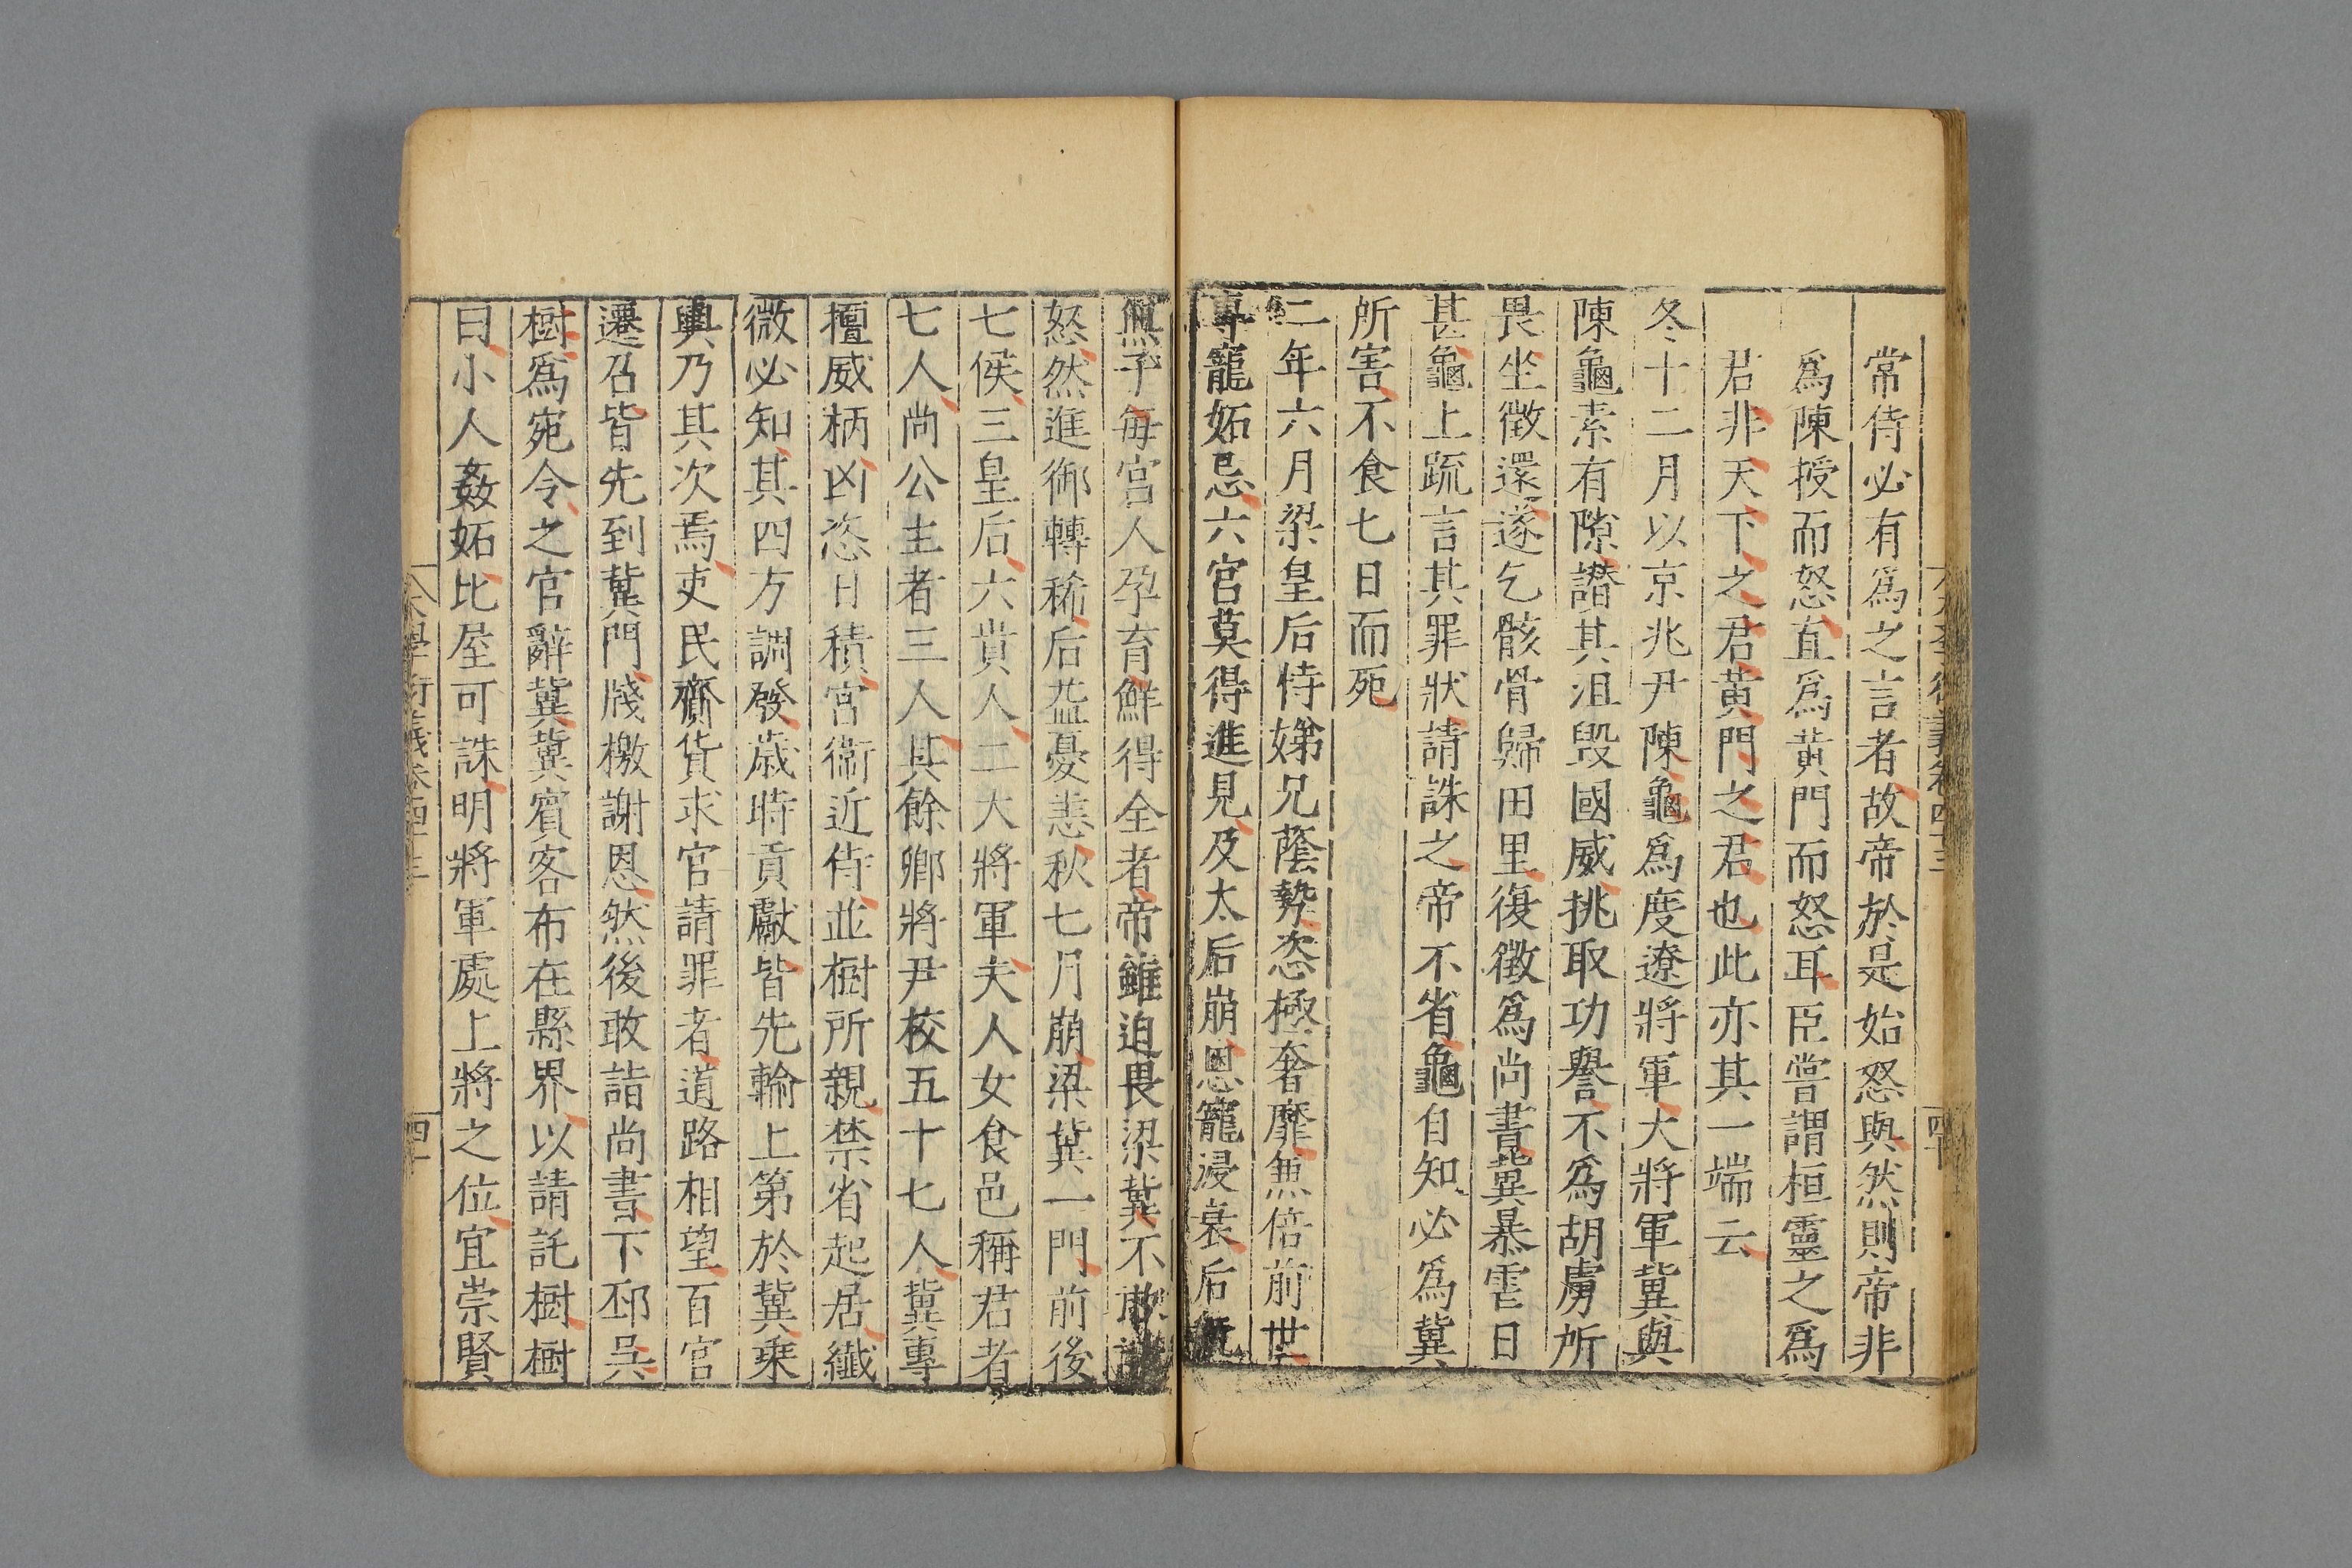 常侍必有爲之言者故帝於是始怒與然則帝非
爲陳授而怒直爲黃門而怒耳臣嘗謂桓靈之爲
君非天下之君黃門之君也此亦其一端云
冬十二月以京兆尹陳龜爲度遼將軍大將軍冀與
陳龜素有隙譖其沮毀國威挑取功譽不爲胡虜所
畏坐徵還遂乞骸骨歸田里復徵爲尚書冀暴虐日
甚龜上疏言其罪狀請誅之帝不省龜自知必爲冀
所害不食七日而死
二年六月梁皇后恃娣兄蔭勢恣極奢靡無倍前世
專寵妬忌六宮莫得進見及太后崩恩寵浸衰后既
無子每宮人孕育鮮得全者帝雖迫畏梁冀不敢譴
怒然進御轉稀后益憂恚秋七月崩梁冀一門前後
七侯三皇后六貴人二大將軍夫人女食邑稱君者
七人尚公主者三人其餘卿將尹校五十七人冀專
擅威柄凶恣日積宮衞近侍並樹所親禁省起居纖
微必知其四方調發歳時貢獻皆先輸上第於冀乘
輿乃其次焉吏民齎貨求官請罪者道路相望百官
遷召皆先到冀門牋檄謝恩然後敢詣尚書下邳吳
樹爲宛令之官辭冀冀賓客布在縣界以請託樹樹
曰小人姦妬比屋可誅明將軍處上將之位宜崇賢
大學衍義卷四十三
四十